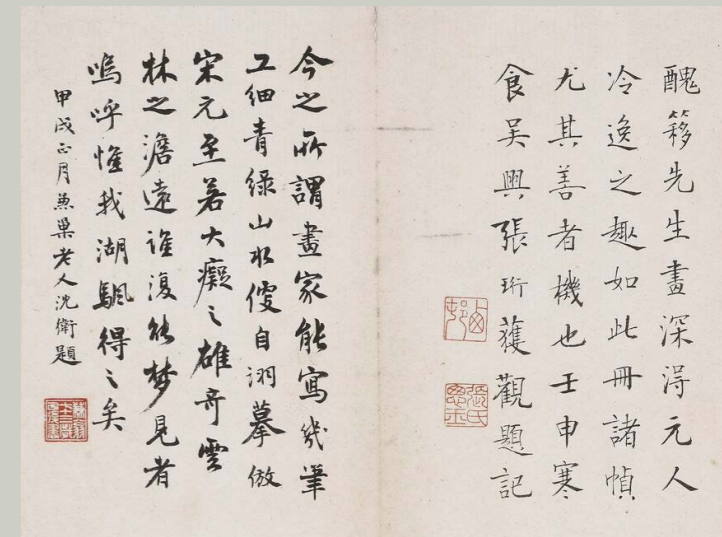 醜簃先生畫深得元人
冷逸之趣如此冊諸幀
尤其善者機也壬申寒
食吳興張珩獲觀題記
今之所謂畫家能寫幾筆
工細青綠山水便自詡摹倣
宋元至若大癡之雄奇雲
林之澹遠誰復能夢見者
嗚呼惟我湖颿得之矣
甲戌正月兼巢老人沈衛題